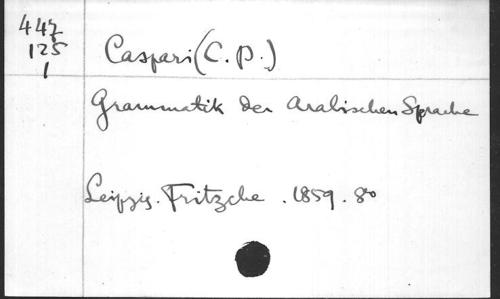 447
125
1
Caspari (C. P.)
Grammatik der Arabischen Sprache
Leipzig. Fritzche . 1859 . 8o